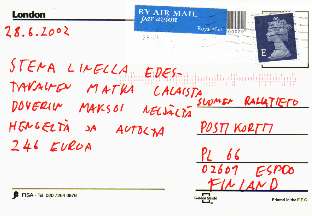 London
28.6.2002
BY AIR MAIL
par avion
Royal Mail
E
STENA LINELLA EDES-
TAKAINEN MATKA CALAISTA
DOVERIIN MAKSOI NELJÄLTÄ
HENGELTÄ JA AUTOLTA
246 EUROA
SUOMEN RALLITIETO
POSTIKORTTI
PL 66
02601 ESPOO
FINLAND
Printed in the E.E.C.